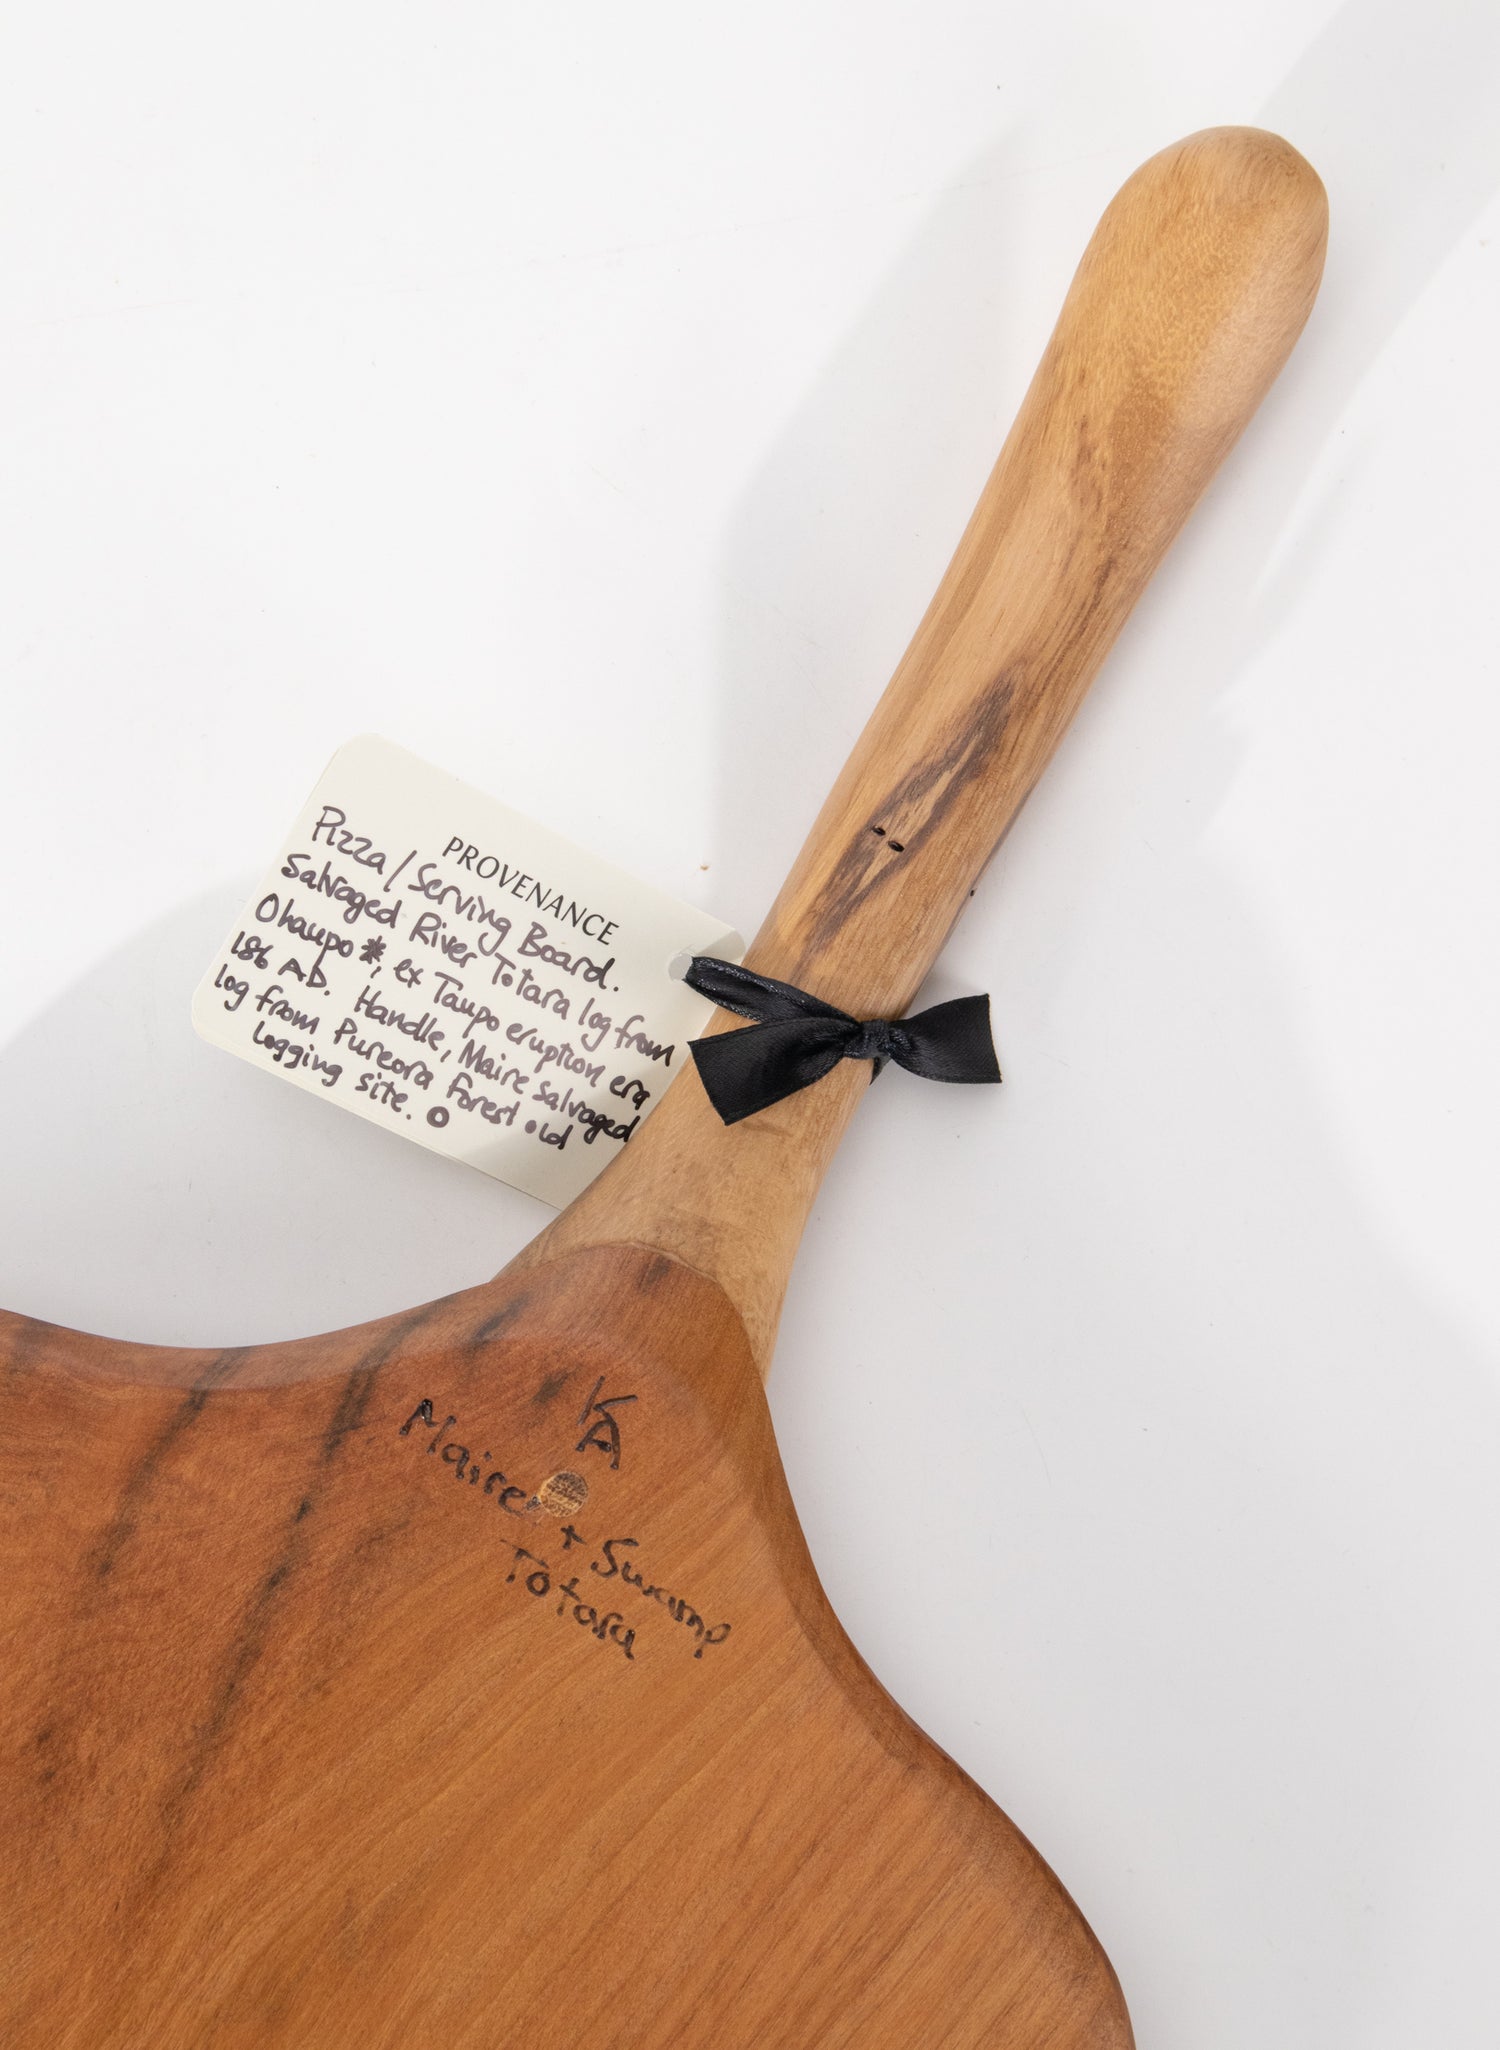 PROVENANCE
Pizza / Serving Board.
Salvaged River Totara log from
Ohaupo *, ex Taupo eruption era
186 A.D. Handle, Maire salvaged
log from Pureora Forest old
logging site.
KA
Maire
+ Swamp
Totara